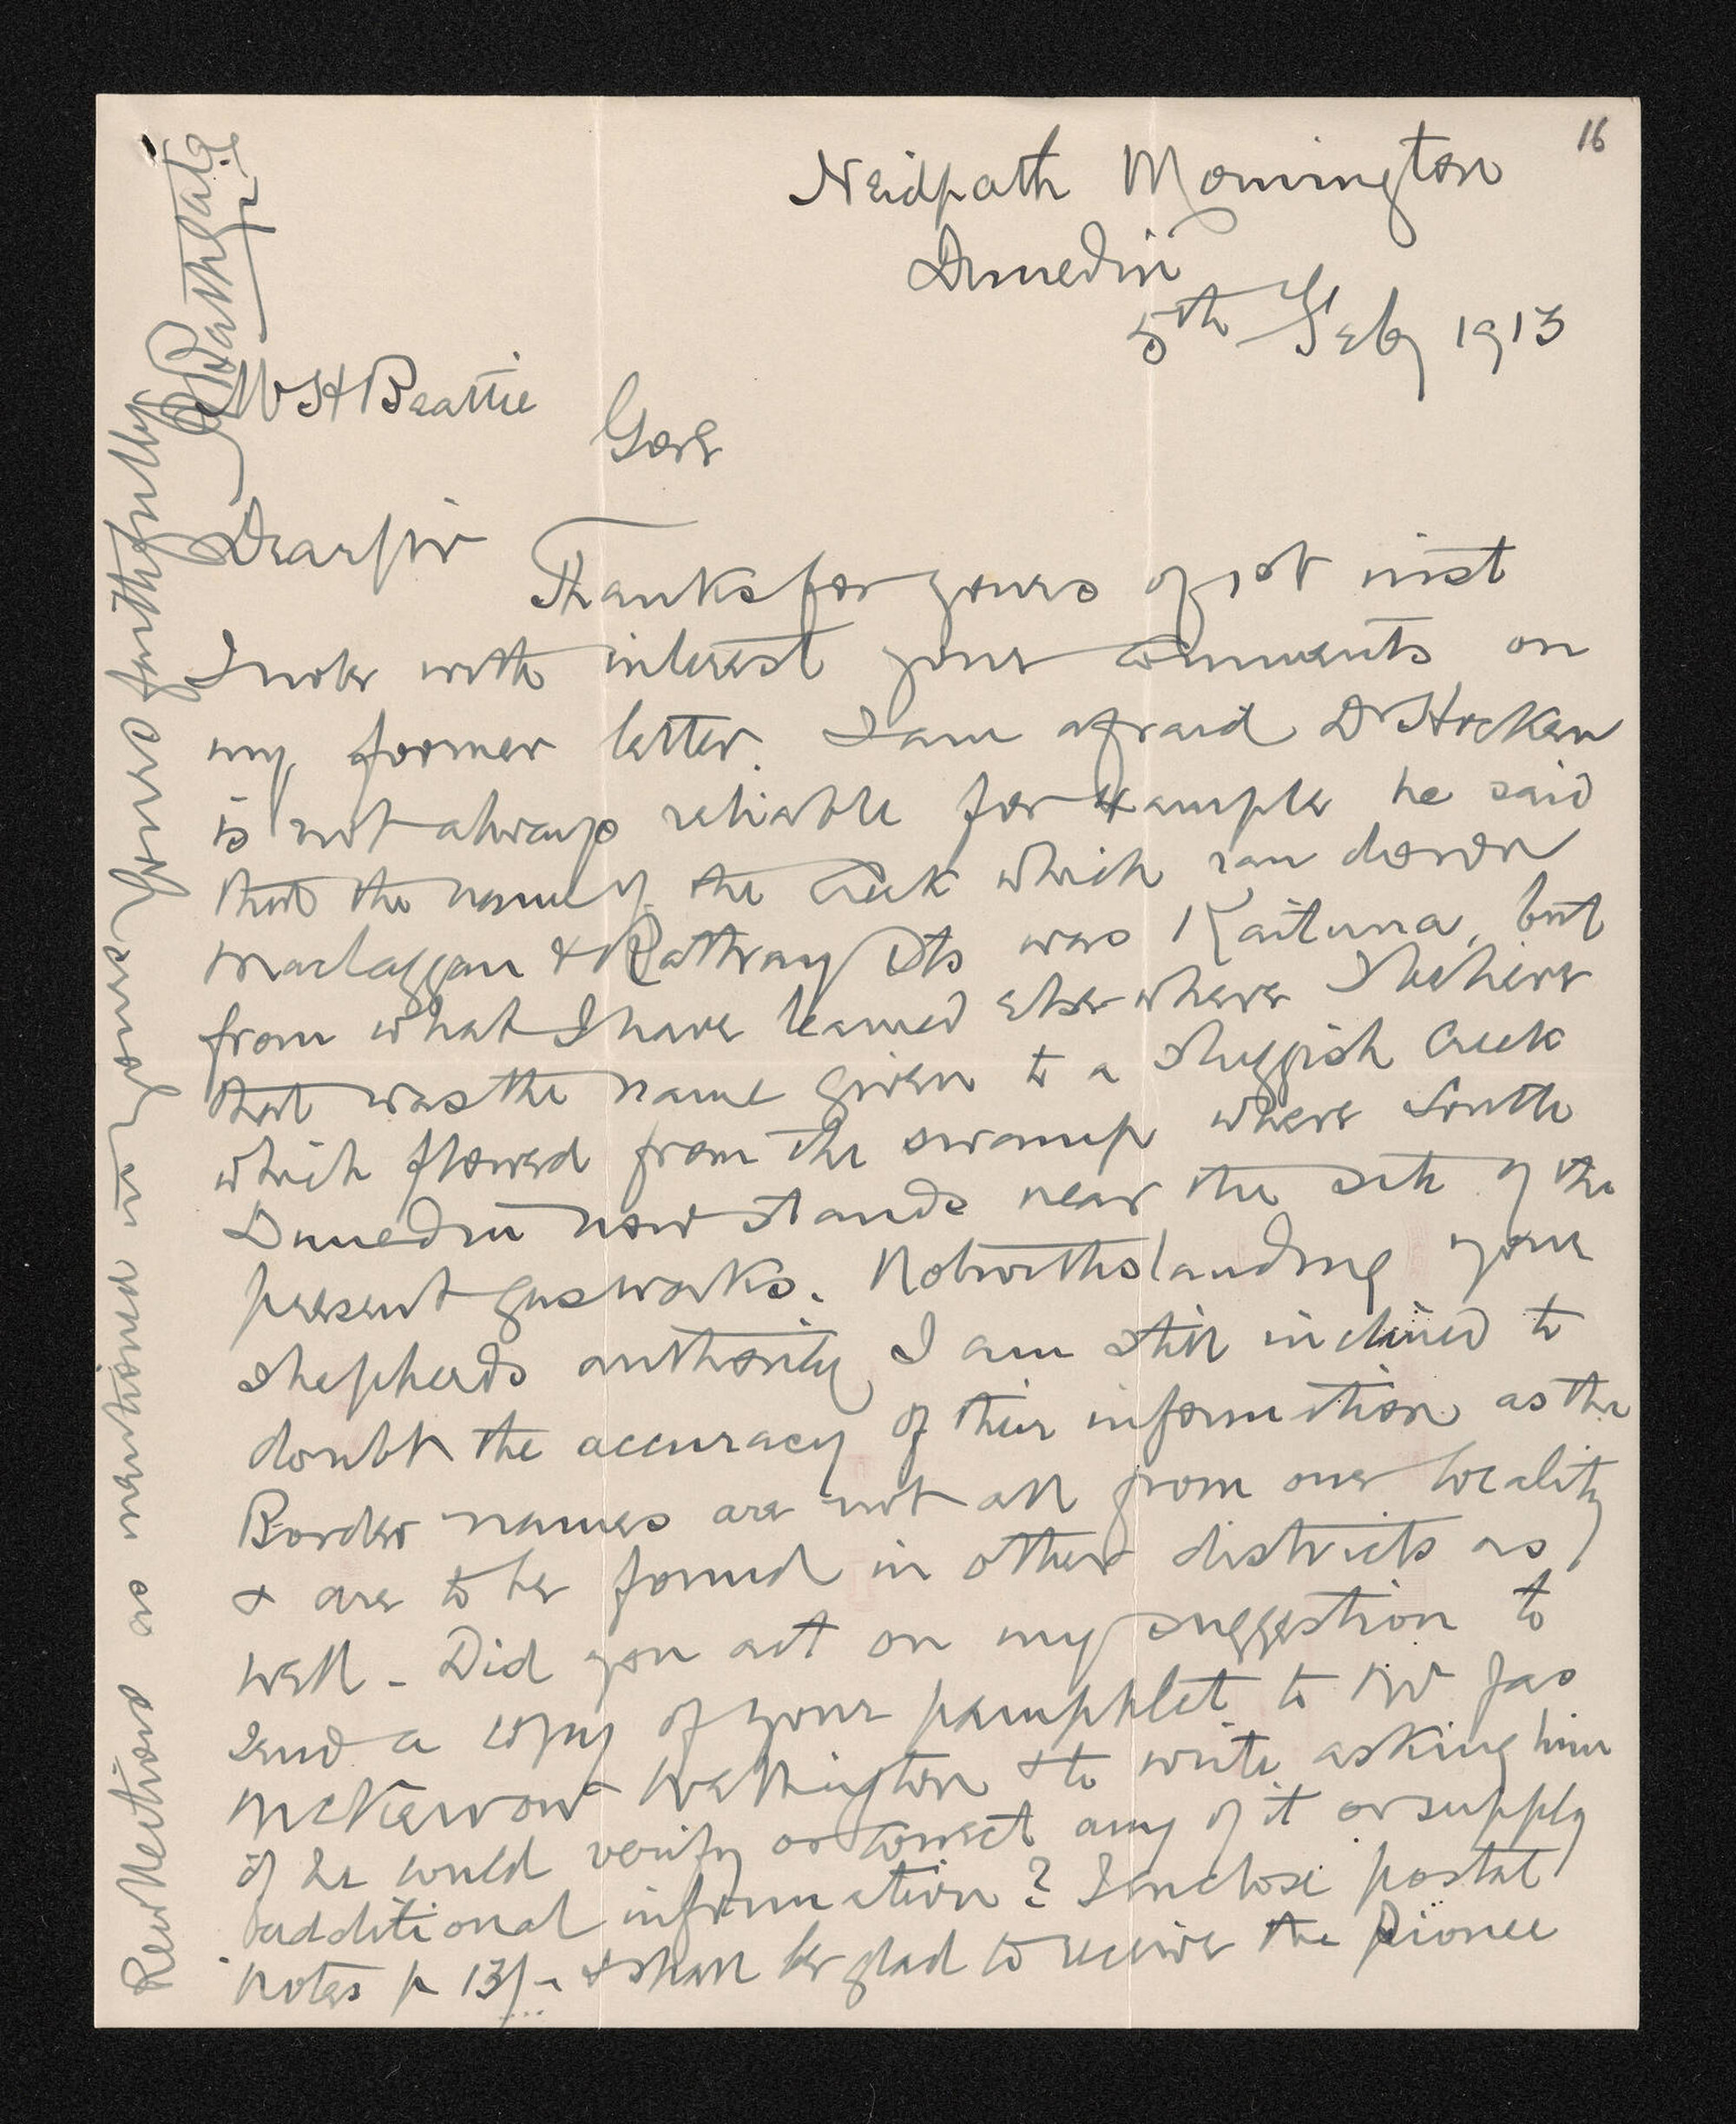 16
Neidpath Mornington
Dunedin
5th Feby 1913
W H Beattie
Gore
Dear Sir
Thanks for yours of 1st inst
I note with interest your comments on
my former letter. I am afraid Dr Hocken
is not always reliable for example he said
that the name of the creek which ran down
Maclaggan & Rattray Sts was Kaituna, but
from what I have learned elsewhere I believe
that was the name given to a sluggish creek
which flowed from the swamp where South
Dunedin now stands near the site of the
present gasworks. Notwithstanding your
shepherds authority I am still inclined to
doubt the accuracy of their information as the
Border names are not all from one locality
& are to be found in other districts as
well - Did you act on my suggestion to
send a copy of your pamphlet to Mr Jas
McKerrow Wellington & to write asking him
if he could verify or correct any of it or supply
additional information? I enclose postal
notes p 13/- & shall be glad to receive the Pioneer
Recollections as mentioned in yours Yours faithfully
A Bathgate